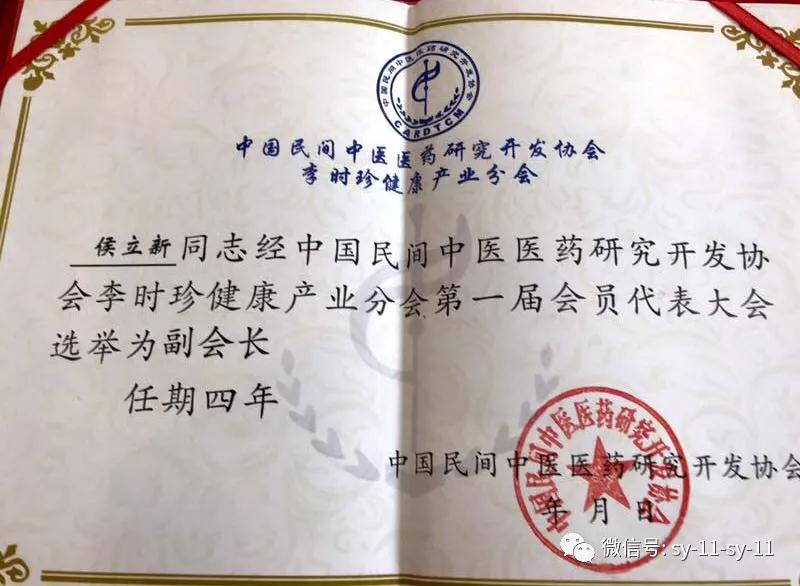 中国民间中医医药研究开发协会
CARDTCM
中国民间中医医药研究开发协会
李时珍健康产业分会
侯立新同志经中国民间中医医药研究开发协
会李时珍健康产业分会第一届会员代表大会
选举为副会长
任期四年
中国民间中医医药研究开发协会
中国民间中医医药研究开发协会
年 月 日
微信号: sy-11-sy-11